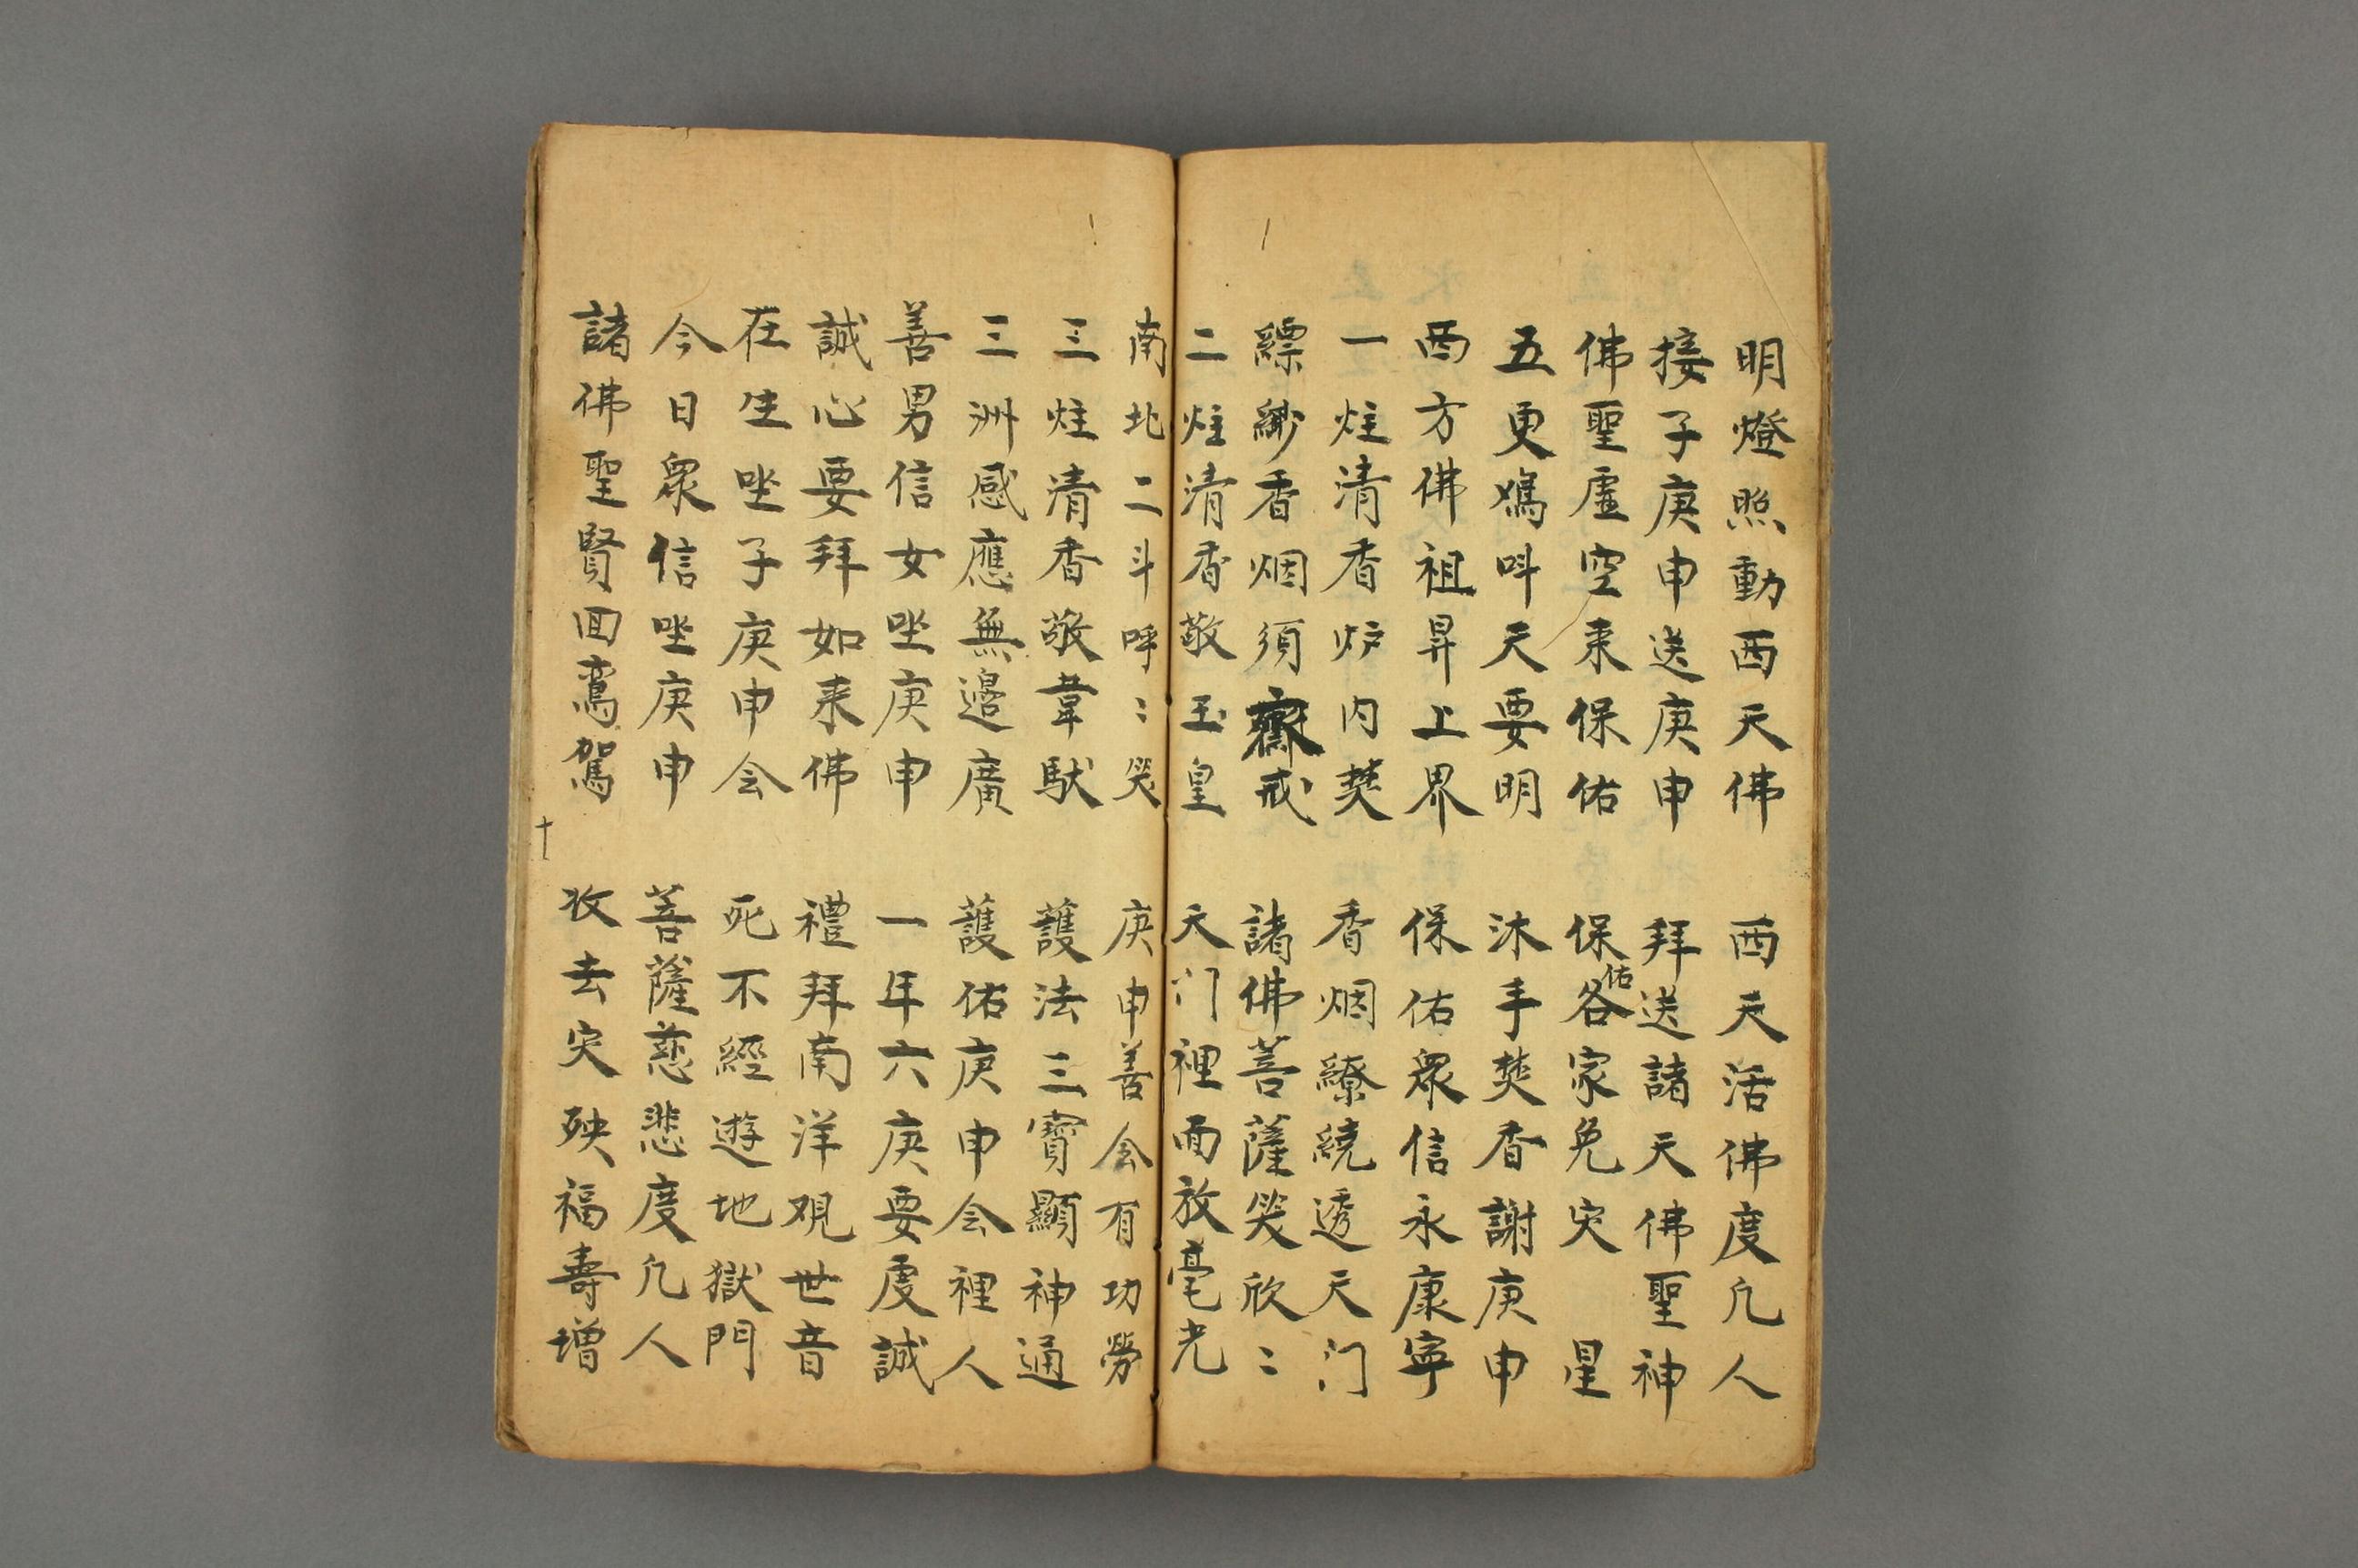 明燈照動西天佛 西天活佛度凢人
接子庚申送庚申 拜送諸天佛聖神
佛聖虛空来保佑 保佑各家免灾星
五更鳮呌天要明 沐手焚香謝庚申
西方佛祖昇上界 保佑衆信永康寧
一炷清香炉内焚 香烟繚繞透天门
縹緲香烟須齋戒 諸佛菩薩笑欣〻
二炷清香敬玉皇 天门裡面放毫光
南北二斗呼〻笑 庚申善会有功勞
三炷清香敬韋馱 護法三寶顯神通
三洲感應無邉廣 護佑庚申会裡人
善男信女坐庚申 一年六庚要虔誠
誠心要拜如来佛 禮拜南洋观世音
在生坐子庚申会 死不經遊地獄門
今日衆信坐庚申 菩薩慈悲度凢人
諸佛聖賢回鸞駕 收去灾殃福壽增
十